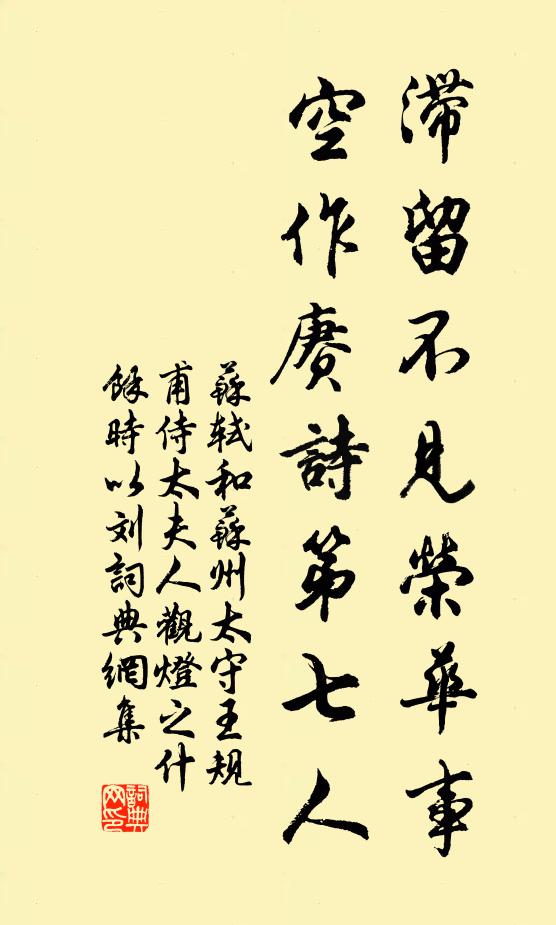 滯留不見榮華事
空作賡詩第七人
蘇軾和蘇州太守王規
甫侍太夫人觀燈之什
餘時以刘詞典網集
詞典
网印